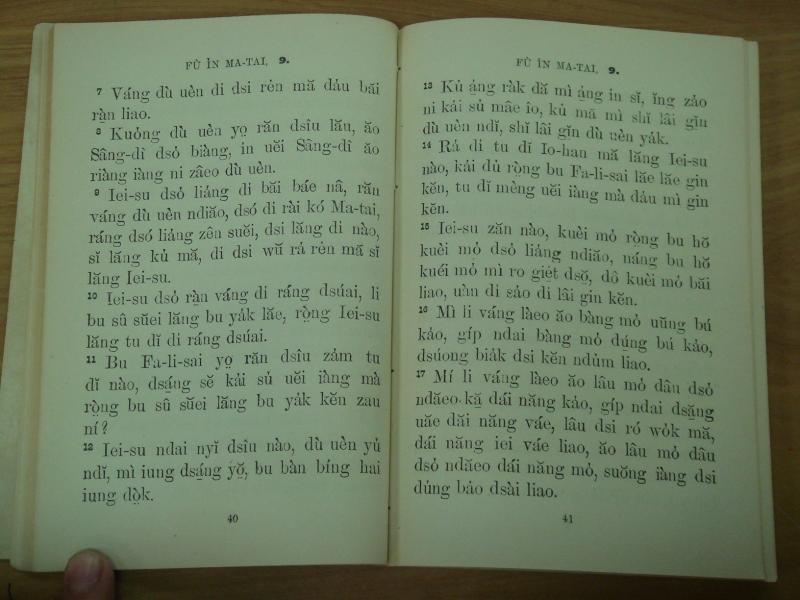 FŬ ÌN MA-TAI, 9.
7 Váng dù uèn di dsi rén mă dáu băi
ràn liao.
8 Kuóng dù uèn yo̤ răn dsîu lău, ăo
Sâng-dî dsó biàng, in uĕi Sâng-dî ăo
riàng iàng ni zâeo dù uèn.
9 Iei-su dsó liáng di băi báe nâ, răn
váng dù uèn ndiăo, dsó di rài kó Ma-tai,
ráng dsó liáng zên suĕi, dsi lăng di nào,
sĭ lăng kủ mă, di dsi wŭ rá rén mă sĭ
lăng Iei-su.
10 Iei-su dsó ràn váng di ráng dsúai, li
bu sû sŭei lăng bu yák lăe, rò̤ng Iei-su
lăng tu dĭ di ráng dsúai.
11 Bu Fa-li-sai yo̤ răn dsîu zảm tu
dĭ nào, dsá̤ng sĕ kải sủ uĕi iàng mà
rò̤ng bu sû sŭei lăng bu yák kĕn zau
ní?
12 Iei-su ndai nyĭ dsîu nào, dù uèn yủ
ndĭ, mì iung dsá̤ng yŏ̤, bu bàn bíng hai
iung dò̤k.
40
FŬ ÌN MA-TAI, 9.
13 Kủ á̤ng ràk dă mì á̤ng in sĭ, ĭng zảo
ni kải sủ mâe îo, kủ mă mì shĭ lâi gĭn
dù uèn ndĭ, shĭ lâi gĭn dù uèn yák.
14 Rá di tu dĭ Io-han mă lăng Iei-su
nào, kải dủ rò̤ng bu Fa-li-sai lăe lăe gin
kĕn, tu dĭ mèng uĕi iàng mà dảu mì gin
kĕn.
15 Iei-su zăn nào, kuèi mỏ rò̤ng bu hŏ
kuèi mỏ dsó liáng ndiăo, náng bu hŏ
kuéi mỏ mì ro giĕt dsŏ̤, dô kuèi mỏ băi
liao, uàn di sáo di lâi gin kĕn.
16 Mì li váng làeo ăo bàng mỏ uŭng bú
kảo, gíp ndai bàng mỏ dúng bú kảo,
dsúong biák dsi kĕn ndủm liao.
17 Mí li váng làeo ăo lâu mỏ dâu dsó
ndăeo kă̤ dái năng kảo, gíp ndai dsă̤ng
uăe dăi năng váe, lâu dsi ró wỏk mă,
dái năng iei váe liao, ăo lâu mỏ dâu
dsó ndăeo dái năng mỏ, suŏng iàng dsi
dủng bảo dsài liao.
41